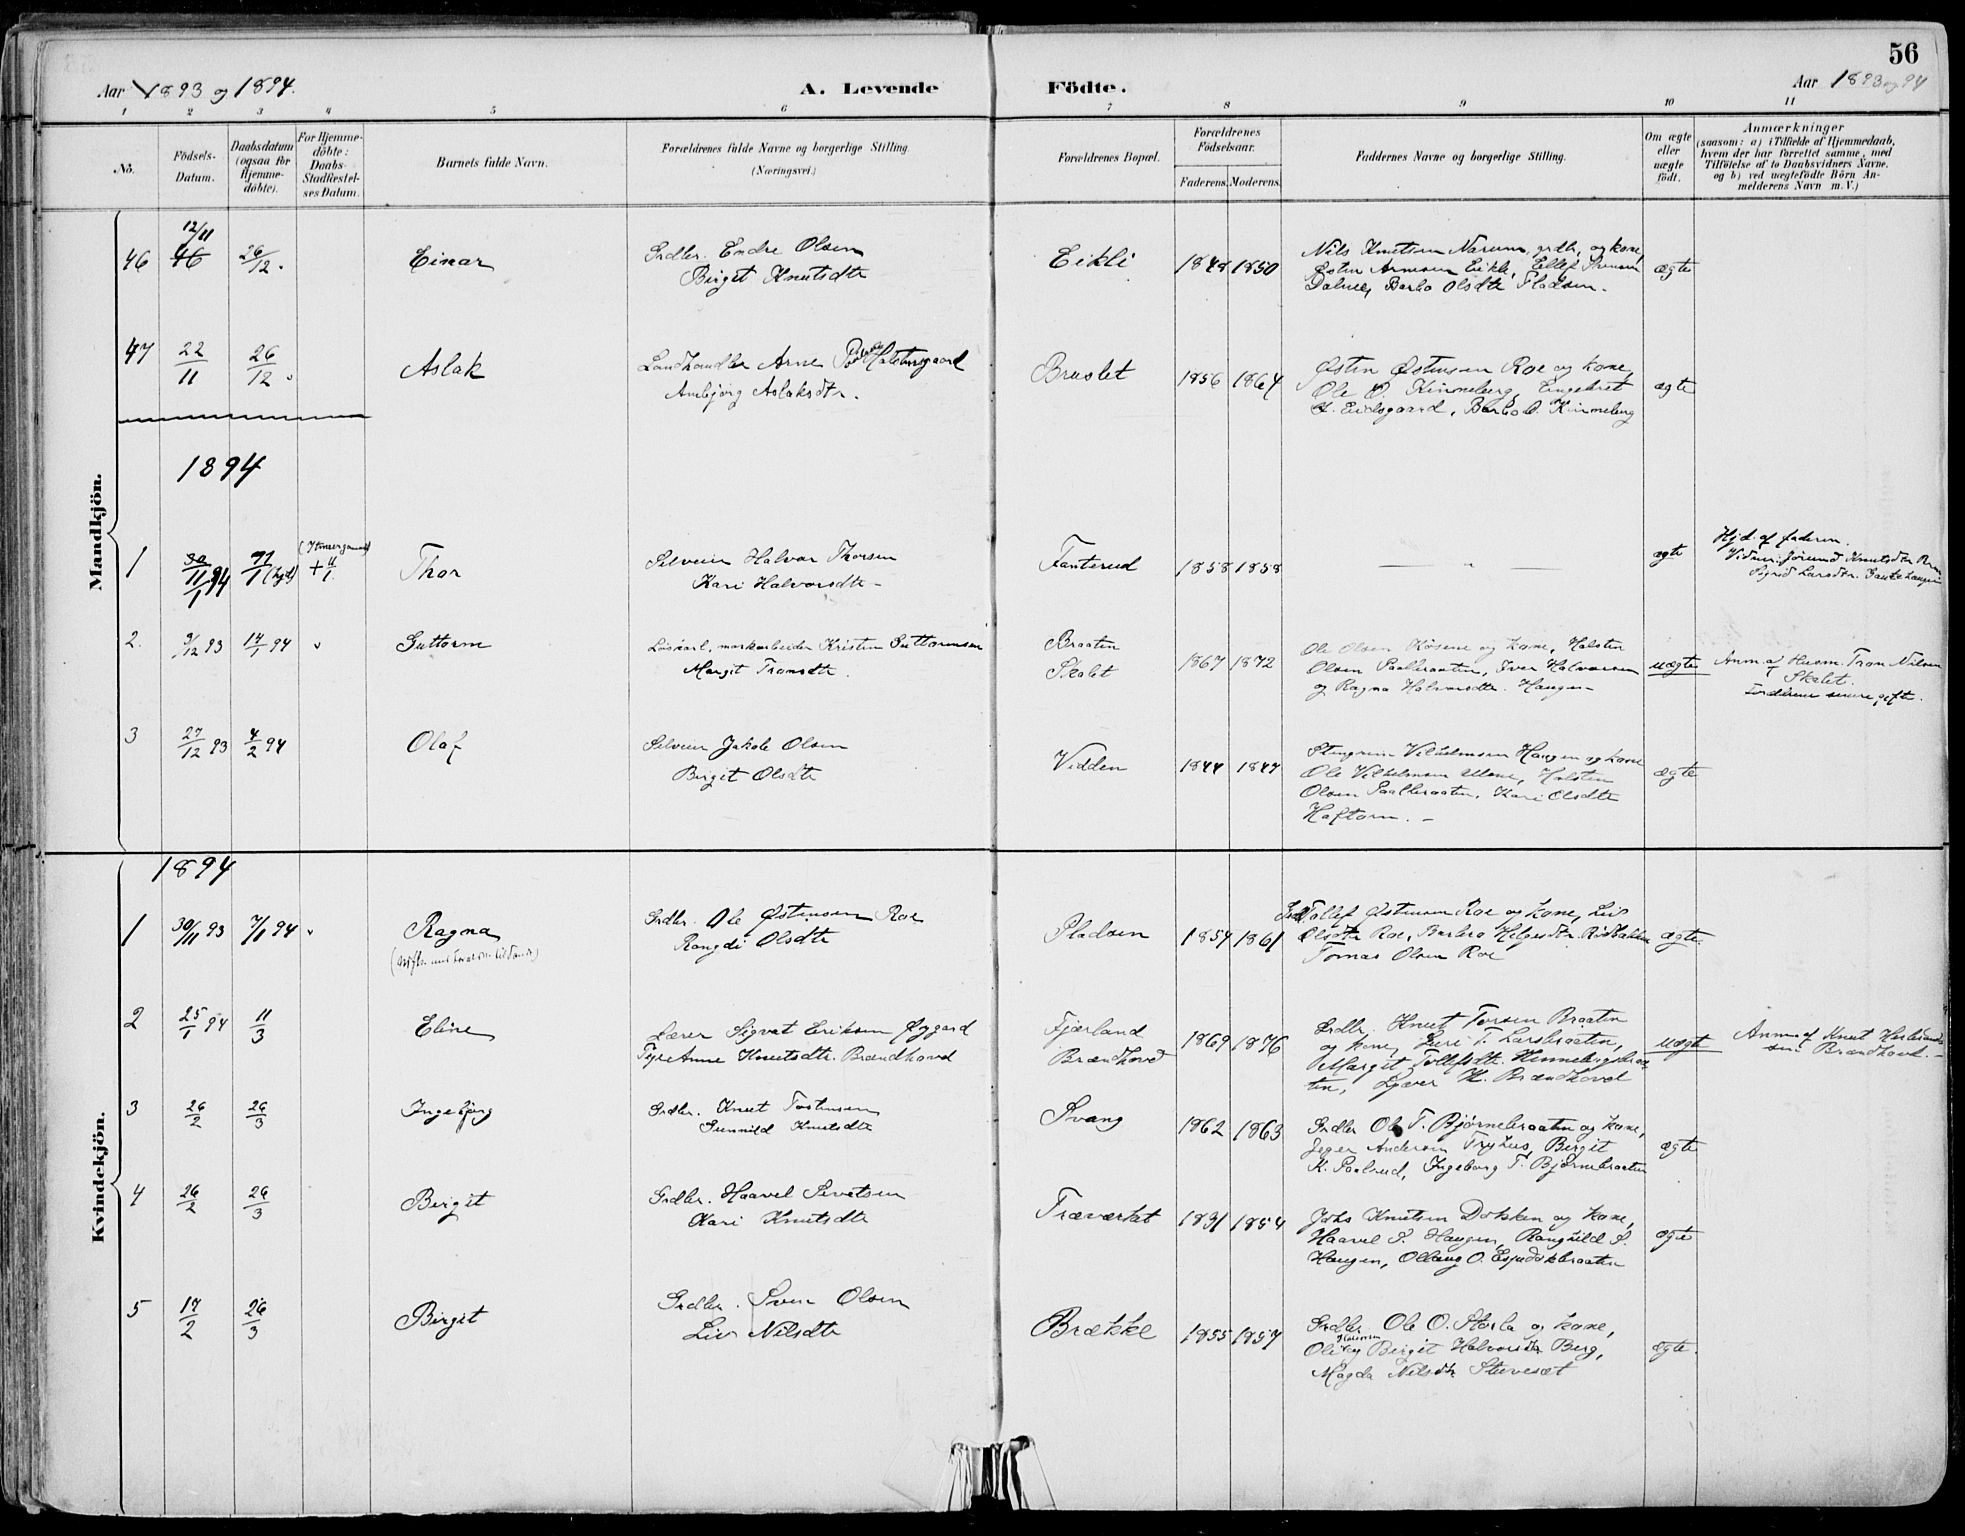 56
Aar 1893 og 1894.
A. Levende Födte.
Aar 1893 og 94
1 2 3 4 5 6 7 8 9 10 11
No.
Födsels-Datum.
Daabsdatum (ogsaa for Hjemme-döbte).
For Hjemme-döbte: Daabs-Stadfæstel-ses Datum.
Barnets fulde Navn.
Forældrenes fulde Navne og borgerlige Stilling (Næringsvei.)
Forældrenes Bopæl.
Forældrenes Födselsaar.
Faderens. Moderens.
Faddernes Navne og borgerlige Stilling.
Om ægte eller uægte födt.
Anmærkninger
(saasom: a) i Tilfælde af Hjemmedaab, hvem der har forrettet samme, med Tilföielse af to Daabsvidners Navne, og b) ved uægtefödte Börn An-melderens Navn m. V.)
Mandkjön.
46 12/11 26/12. Einar
Grdbr. Endre Olsen
Birgit Knutsdtr
Eikli 1848 1850
Nils Knutsen Narum, grdbr, og kone,
Østen Arnesen Eikli, Ellef
Barbo Olsdtr Pladsen.
ægte
47 22/11 26/12. Aslak
Landhandler Arne Halstensgaard
Ambjørg Aslaksdtr.
Bruslet 1856 1864
Østen Østensen Roe og kone,
Ole O. Kinneberg, Engebret
Eidsgaard, Barbo O. Kinneberg
ægte
1894
1 11/1 94 11/1 (hjd) + 11/1 Thor
Selveier Halvor Thorsen
Kari Halvorsdtr -
Fanterud 1858 1858
— " —
ægte
Hjd. af faderen.
Vidner: Jørund Knutsdtr
Sigrid Larsdtr.
2. 9/12 93 14/1 94 Guttorm
Löskarl, markarbeider Kristen Guttormsen
Margit Tronsdtr.
Braaten
Skalet
1867 1872
Ole Olsen og kone, Halsten
Olsen Paalbraaten, Iver Halvorsen
og Ragna Halvorsdtr. Haugen -
uægte
Anm. af Husm. Tron Nilsen
Skalet.
Forældrene senere gifte.
3 27/12 93 4/2 94 Olaf
Selveier Jakob Olsen
Birgit Olsdtr
Vidden 1844 1847
Stengrim Vilhelmsen Haugen og kone
Ole Vilhelmsen Moen, Halsten
Olsen Paalbraaten, Kari Olsdtr
Haftorn. -
ægte
Kvindekjön.
1894
1 30/11 93 7/1 94 Ragna
Grdbr. Ole Østensen Roe
Rangdi Olsdtr
Pladsen 1854 1861
Tollef Østensen Roe og kone, Liv
Olsdtr Roe, Barbro Helgesdtr. Rødbakken
Tomas Olsen Roe
ægte.
2 25/1 94 11/3 Eline
Lærer Sigvat Eriksen Øygard
Pige Anne Knutsdtr. Brændhovd
Fjærland
Brændhovd
1869 1876
Grdbr. Knut Torsen Braaten
og kone, Guri T. Larsbraaten,
Margit Tollefsdtr.
K. Brændhovd
uægte
Anm. af Knut
Brændhovd. -
3 26/2 26/3 Ingebjørg
Grdbr. Knut Tostensen
Gunnild Knutsdtr
Svang 1862 1863
Grdbr Ole T. Bjørnebraaten og kone,
Andersen Tryhus, Birgit
K. Paalsrud, Ingeborg T. Bjørnebraaten
ægte
4 26/2 26/3 Birgit
Grdbr. Haavel Sevetsen
Kari Knutsdtr
1854
Johs Knutsen Dokken og kone,
Haavel S. Haugen, Ranghild S.
Haugen,
ægte
5 17/2 26/3 Birgit
Grdbr. Sven Olsen
Liv Nilsdtr
Brække 1855 1857
Grdbr. Ole O. Storla og kone,
Birgit Halvorsdtr Berg,
Magda Nilsdtr Stuvesæt
ægte.